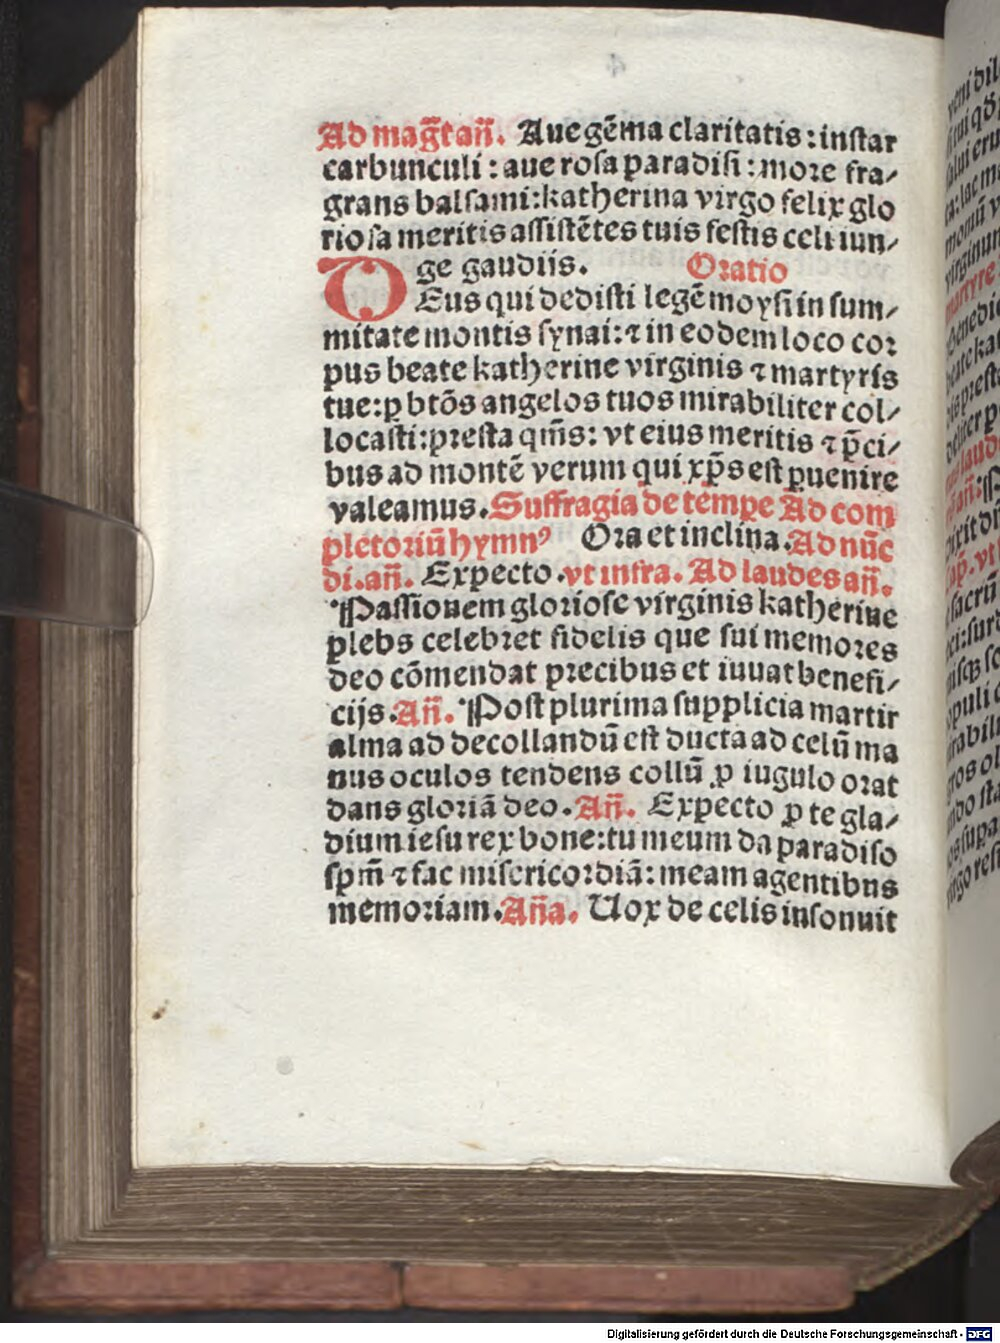 Ad mag̃t añ. Aue gẽma claritatis: instar
carbunculi: aue rosa paradisi: more fra/
grans balsami: katherina virgo felix glo
riosa meritis assistẽtes tuis festis celi iun/
ge gaudiis. Oratio
DEus qui dedisti legẽ moysi in sum/
mitate montis synai: ⁊ in eodem loco cor
pus beate katherine virginis ⁊ martyris
tue: ꝑ btõs angelos tuos mirabiliter col/
locasti: presta qm̃s: vt eius meritis ⁊ p̃ci/
bus ad montẽ verum qui xp̃s est ꝑuenire
valeamus. Suffragia de tẽmpe Ad com
pletoriũ hymnꝰ Ora et inclina. Ad nũc
di. añ. Expecto. vt infra. Ad laudes añ.
Passionem gloriose virginis katherine
plebs celebret fidelis que sui memores
deo cõmendat precibus et iuuat benefi/
cijs. Añ. Post plurima supplicia martir
alma ad decollandũ est ducta ad celũ ma
nus oculos tendens collũ ꝓ iugulo orat
dans gloriã deo. Añ. Expecto ꝓ te gla/
dium iesu rex bone: tu meum da paradiso
spm̃ ⁊ fac misericordiã: meam agentibus
memoriam. Aña. Uox de celis insonuit
Digitalisierung gefördert durch die Deutsche Forschungsgemeinschaft - DFG